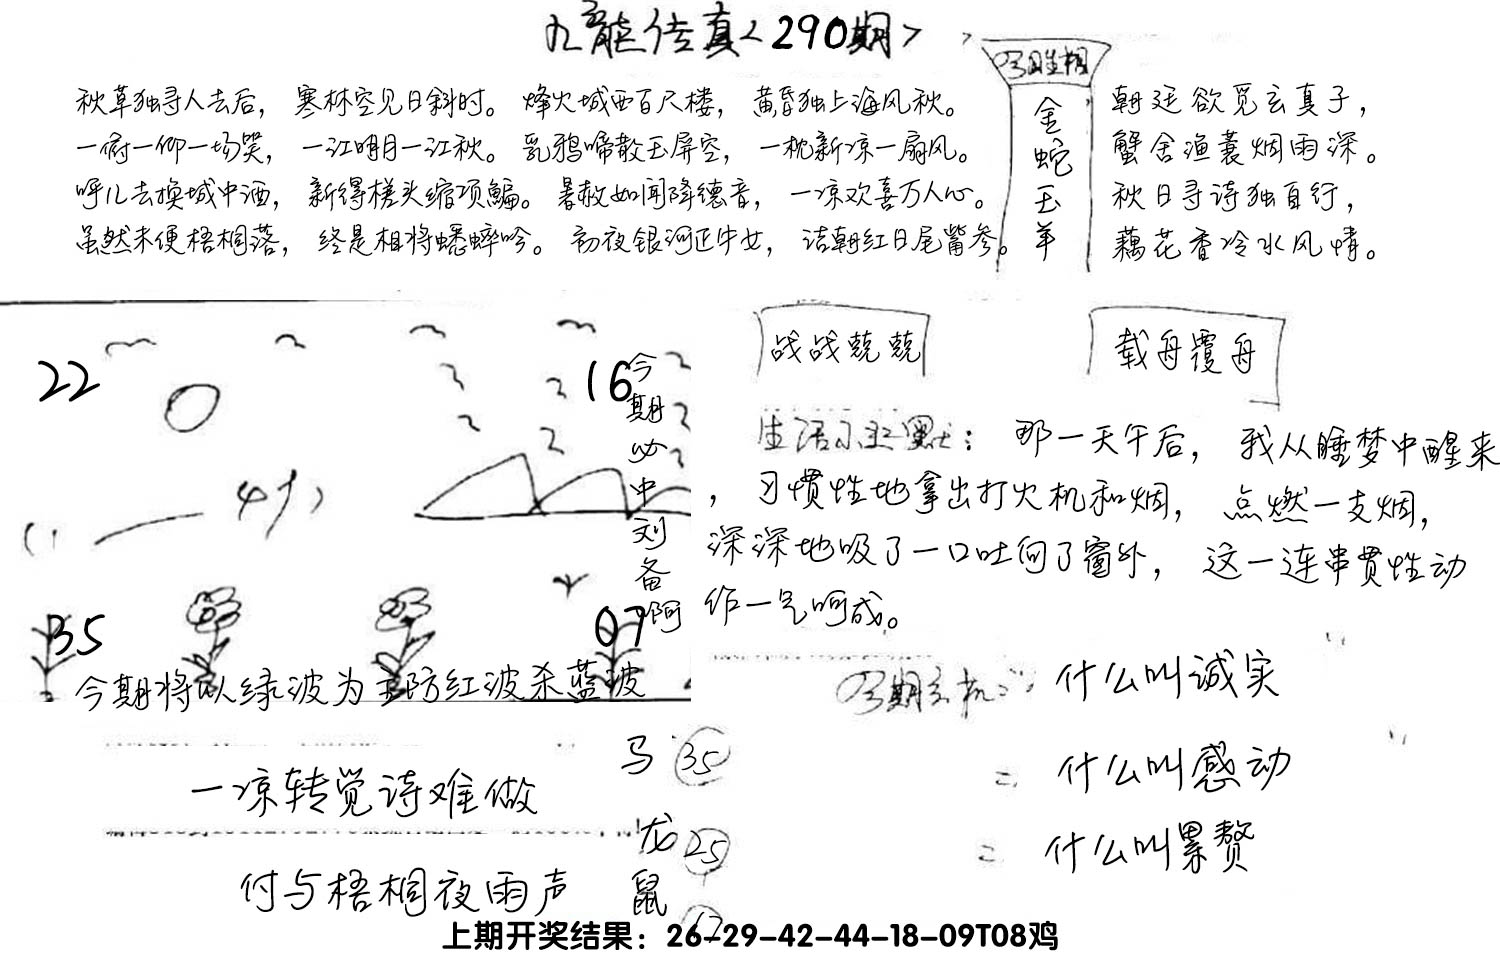 九龙传真<290期>
今期生相
金蛇玉羊
秋草独寻人去后，寒林空见日斜时。烽火城西百尺楼，黄昏独上海风秋。
一俯一仰一场笑，一江明月一江秋。乳鸦啼散玉屏空，一枕新凉一扇风。
呼儿去换城中酒，新得槎头缩项鳊。暑赦如闻降德音，一凉欢喜万人心。
虽然未便梧桐落，终是相将蟋蟀吟。初夜银河正牛女，诘朝红日尾觜参。
朝廷欲觅玄真子，
蟹舍渔蓑烟雨深。
秋日寻诗独自行，
藕花香冷水风情。
22
16
35
07
今期必中刘备啊
今期将以绿波为主防红波杀蓝波
战战兢兢
载舟覆舟
生活小幽默：那一天午后，我从睡梦中醒来
，习惯性地拿出打火机和烟，点燃一支烟，
深深地吸了一口吐向了窗外，这一连串贯性动
作一气呵成。
今期玄机
什么叫诚实
什么叫感动
什么叫累赘
一凉转觉诗难做
付与梧桐夜雨声
马 35
龙 25
鼠
上期开奖结果：26-29-42-44-18-09T08鸡